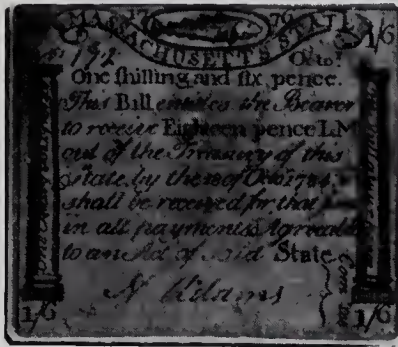 17 76
MASSACHUSETTS STATE
1/6
192 Octo
One shilling and six pence.
This Bill entitles the Bearer
to receive Eighteen pence LM
out of the Treasury of this
State, by the 18 of Octo 1784
shall be received for that
in all payments Agreeable
to an Act of said State
Com
1/6 1/6